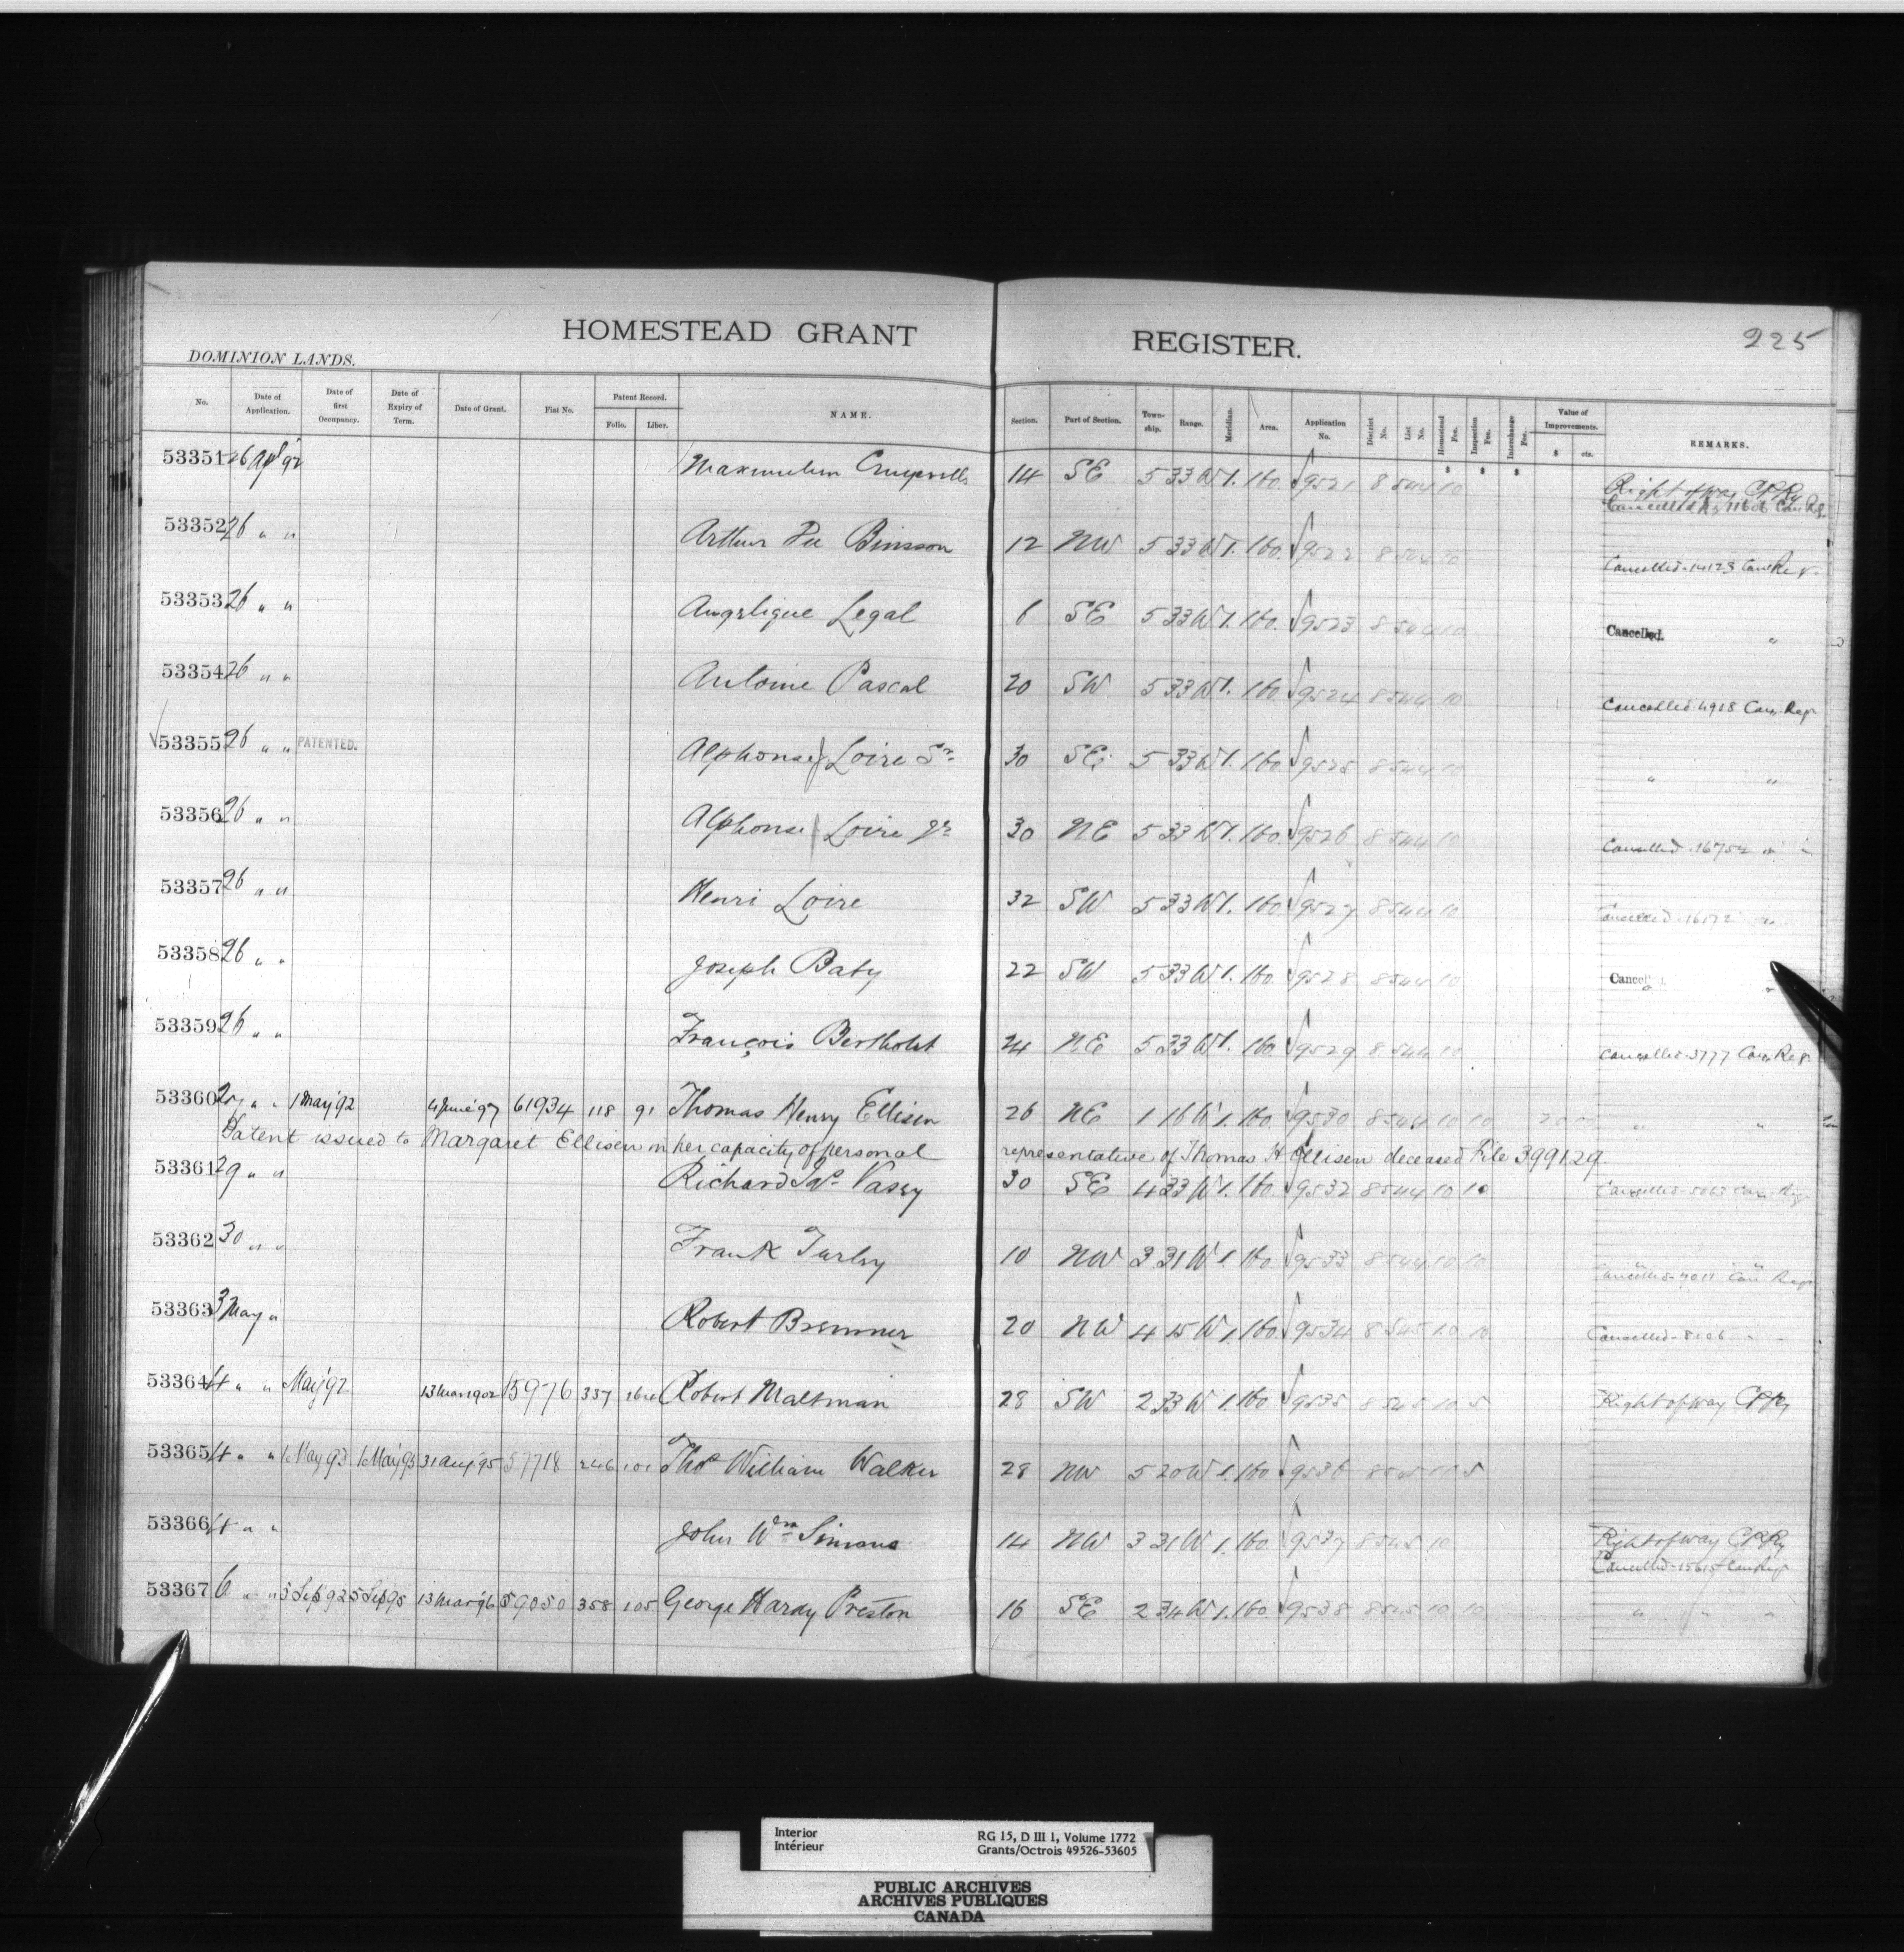 HOMESTEAD GRANT REGISTER. 225
DOMINION LANDS.
No. Date of Application. Date of first Occupancy. Date of Expiry of Term. Date of Grant. Fiat No. Patent Record. Folio. Liber. NAME. Section. Part of Section. Town-ship. Range. Meridian. Area. Application No. District No. List No. Homestead Fee. Inspection Fee. Interchange Fee. Value of Improvements. $ cts. REMARKS.
$ $ $
53351 26 Apl 92 14 SE 5 33 W 1. 160. 9521 8 544 10 Right of way CPRy
Cancelled 11606 Can Reg.
53352 26 " " Arthur Binsson 12 NW 5 33 W 1. 160. 9522 8 544 10
Cancelled 14123 Can Reg.
53353 26 " " Angelique Legal 6 SE 5 33 W 1. 160. 9523 8 544 10
Cancelled. "
53354 26 " " Antoine Pascal 20 SW 5 33 W 1. 160 9524 8 544 10
Cancelled 4928 Can. Reg.
53355 26 " " PATENTED. Alphonse Loire Sr 30 SE 5 33 W 1. 160 9525 8 544 10
" "
53356 26 " " Alphonse Loire Jr 30 NE 5 33 W 1. 160. 9526 8 544 10
Cancelled 16754 " "
53357 26 " " Henri Loire 32 SW 5 33 W 1. 160 9527 8 544 10
Cancelled 16172 "
53358 26 " " Joseph Baty 22 SW 5 33 W 1. 160 9528 8 544 10
53359 26 " " François Bertholet 24 NE 5 33 W 1. 160 9529 8 544 10
Cancelled 3777 Can. Reg.
53360 27 " " 1 May '92 4 June '97 61934 118 91 Thomas Henry Ellisen 26 NE 1 16 W 1. 160. 9530 8 544 10 10 20 00 " "
Patent issued to Margaret Ellisen in her capacity of personal representative of Thomas H Ellisen deceased File 399129.
53361 29 " " Richard Vasey 30 SE 4 33 W 1. 160. 9532 8 544 10 10 Cancelled 5063 Can. Reg.
53362 30 " " Frank Turley 10 NW 3 31 W 1. 160. 9533 8 544 10 10
Cancelled 7011 Can Reg
53363 3 May " Robert Bremner 20 NW 4 15 W 1. 160. 9534 8 545 10 10 Cancelled 8106 " "
53364 4 " " May '92 13 Mar 1902 15976 337 Robert Maltman 28 SW 2 33 W 1. 160 9535 8 545 10 5 Right of way CPRy
53365 4 " " 1 May 93 1 May 95 31 Aug '95 57718 246 101 Thos William Walker 28 NW 5 20 W 1. 160 9536 8 545 10 5
53366 4 " " John Wm Simons 14 NW 3 31 W 1. 160. 9537 8 545 10 Right of way CPRy
Cancelled 15615 Can Reg
53367 6 " " 5 Sep 92 5 Sep 95 13 Mar 96 59050 358 105 George Hardy Preston 16 SE 2 34 W 1. 160. 9538 8 545 10 10 " " "
Interior RG 15, D III 1, Volume 1772
Intérieur Grants/Octrois 49526-53605
PUBLIC ARCHIVES
ARCHIVES PUBLIQUES
CANADA